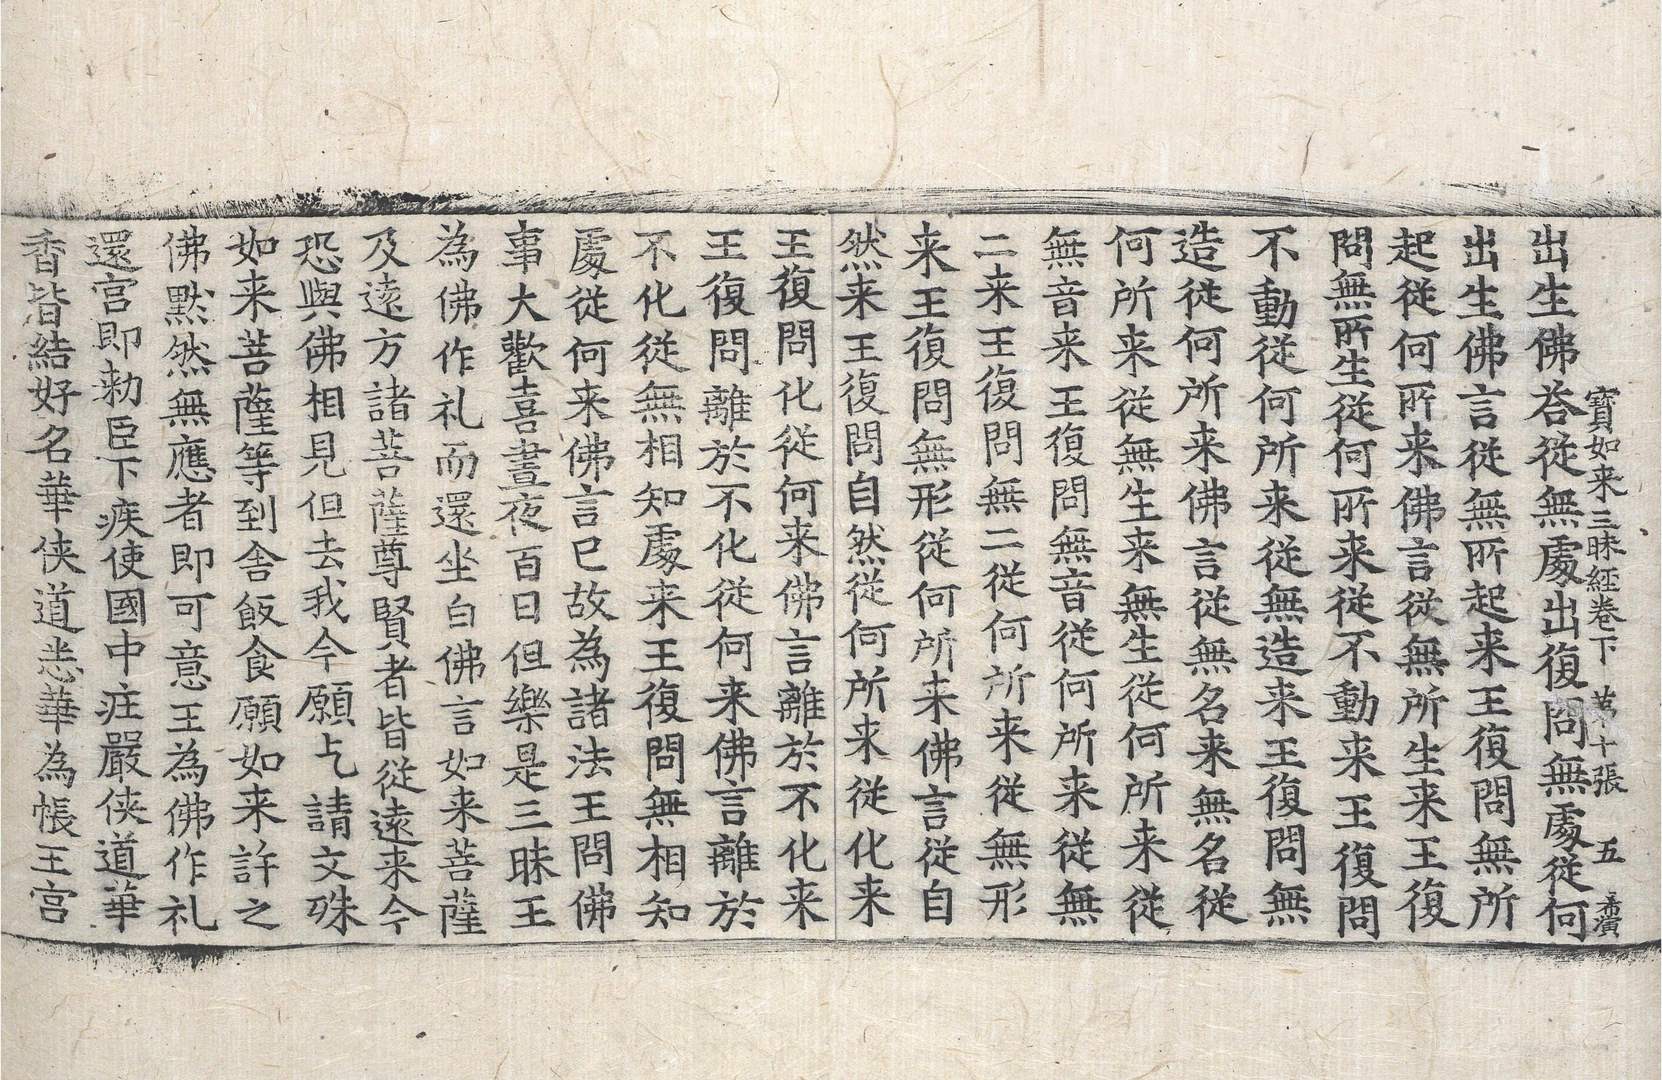 寶如来三昧経卷下 苐十張 五 㳂演
出生佛荅從無處出復問無處從何
出生佛言從無所起来王復問無所
起從何所来佛言從無所生来王復
問無所生從何所来從不動来王復問
不動從何所来從無造来王復問無
造從何所来佛言從無名来無名從
何所来從無生来無生從何所来從
無音来王復問無音從何所来從無
二来王復問無二從何所来從無形
来王復問無形從何所来佛言從自
然来王復問自然從何所来從化来
王復問化從何来佛言離於不化来
王復問離於不化從何来佛言離於
不化從無相知處来王復問無相知
處從何来佛言已故為諸法王問佛
事大歡喜晝夜百日但樂是三昧王
為佛作礼而還坐白佛言如来菩薩
及遠方諸菩薩尊賢者皆從遠来今
恐與佛相見但去我今願乞請文殊
如来菩薩等到舍飯食願如来許之
佛默然無應者即可意王為佛作礼
還宮即勑臣下疾使國中庄嚴俠道華
香皆結好名華俠道悉華為帳王宮